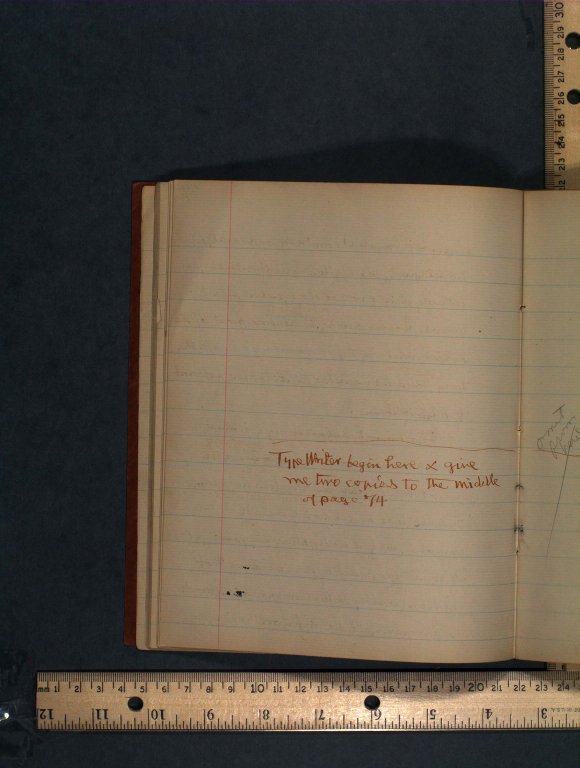 TypeWriter begin here & give
me two copies to the middle
of page 74